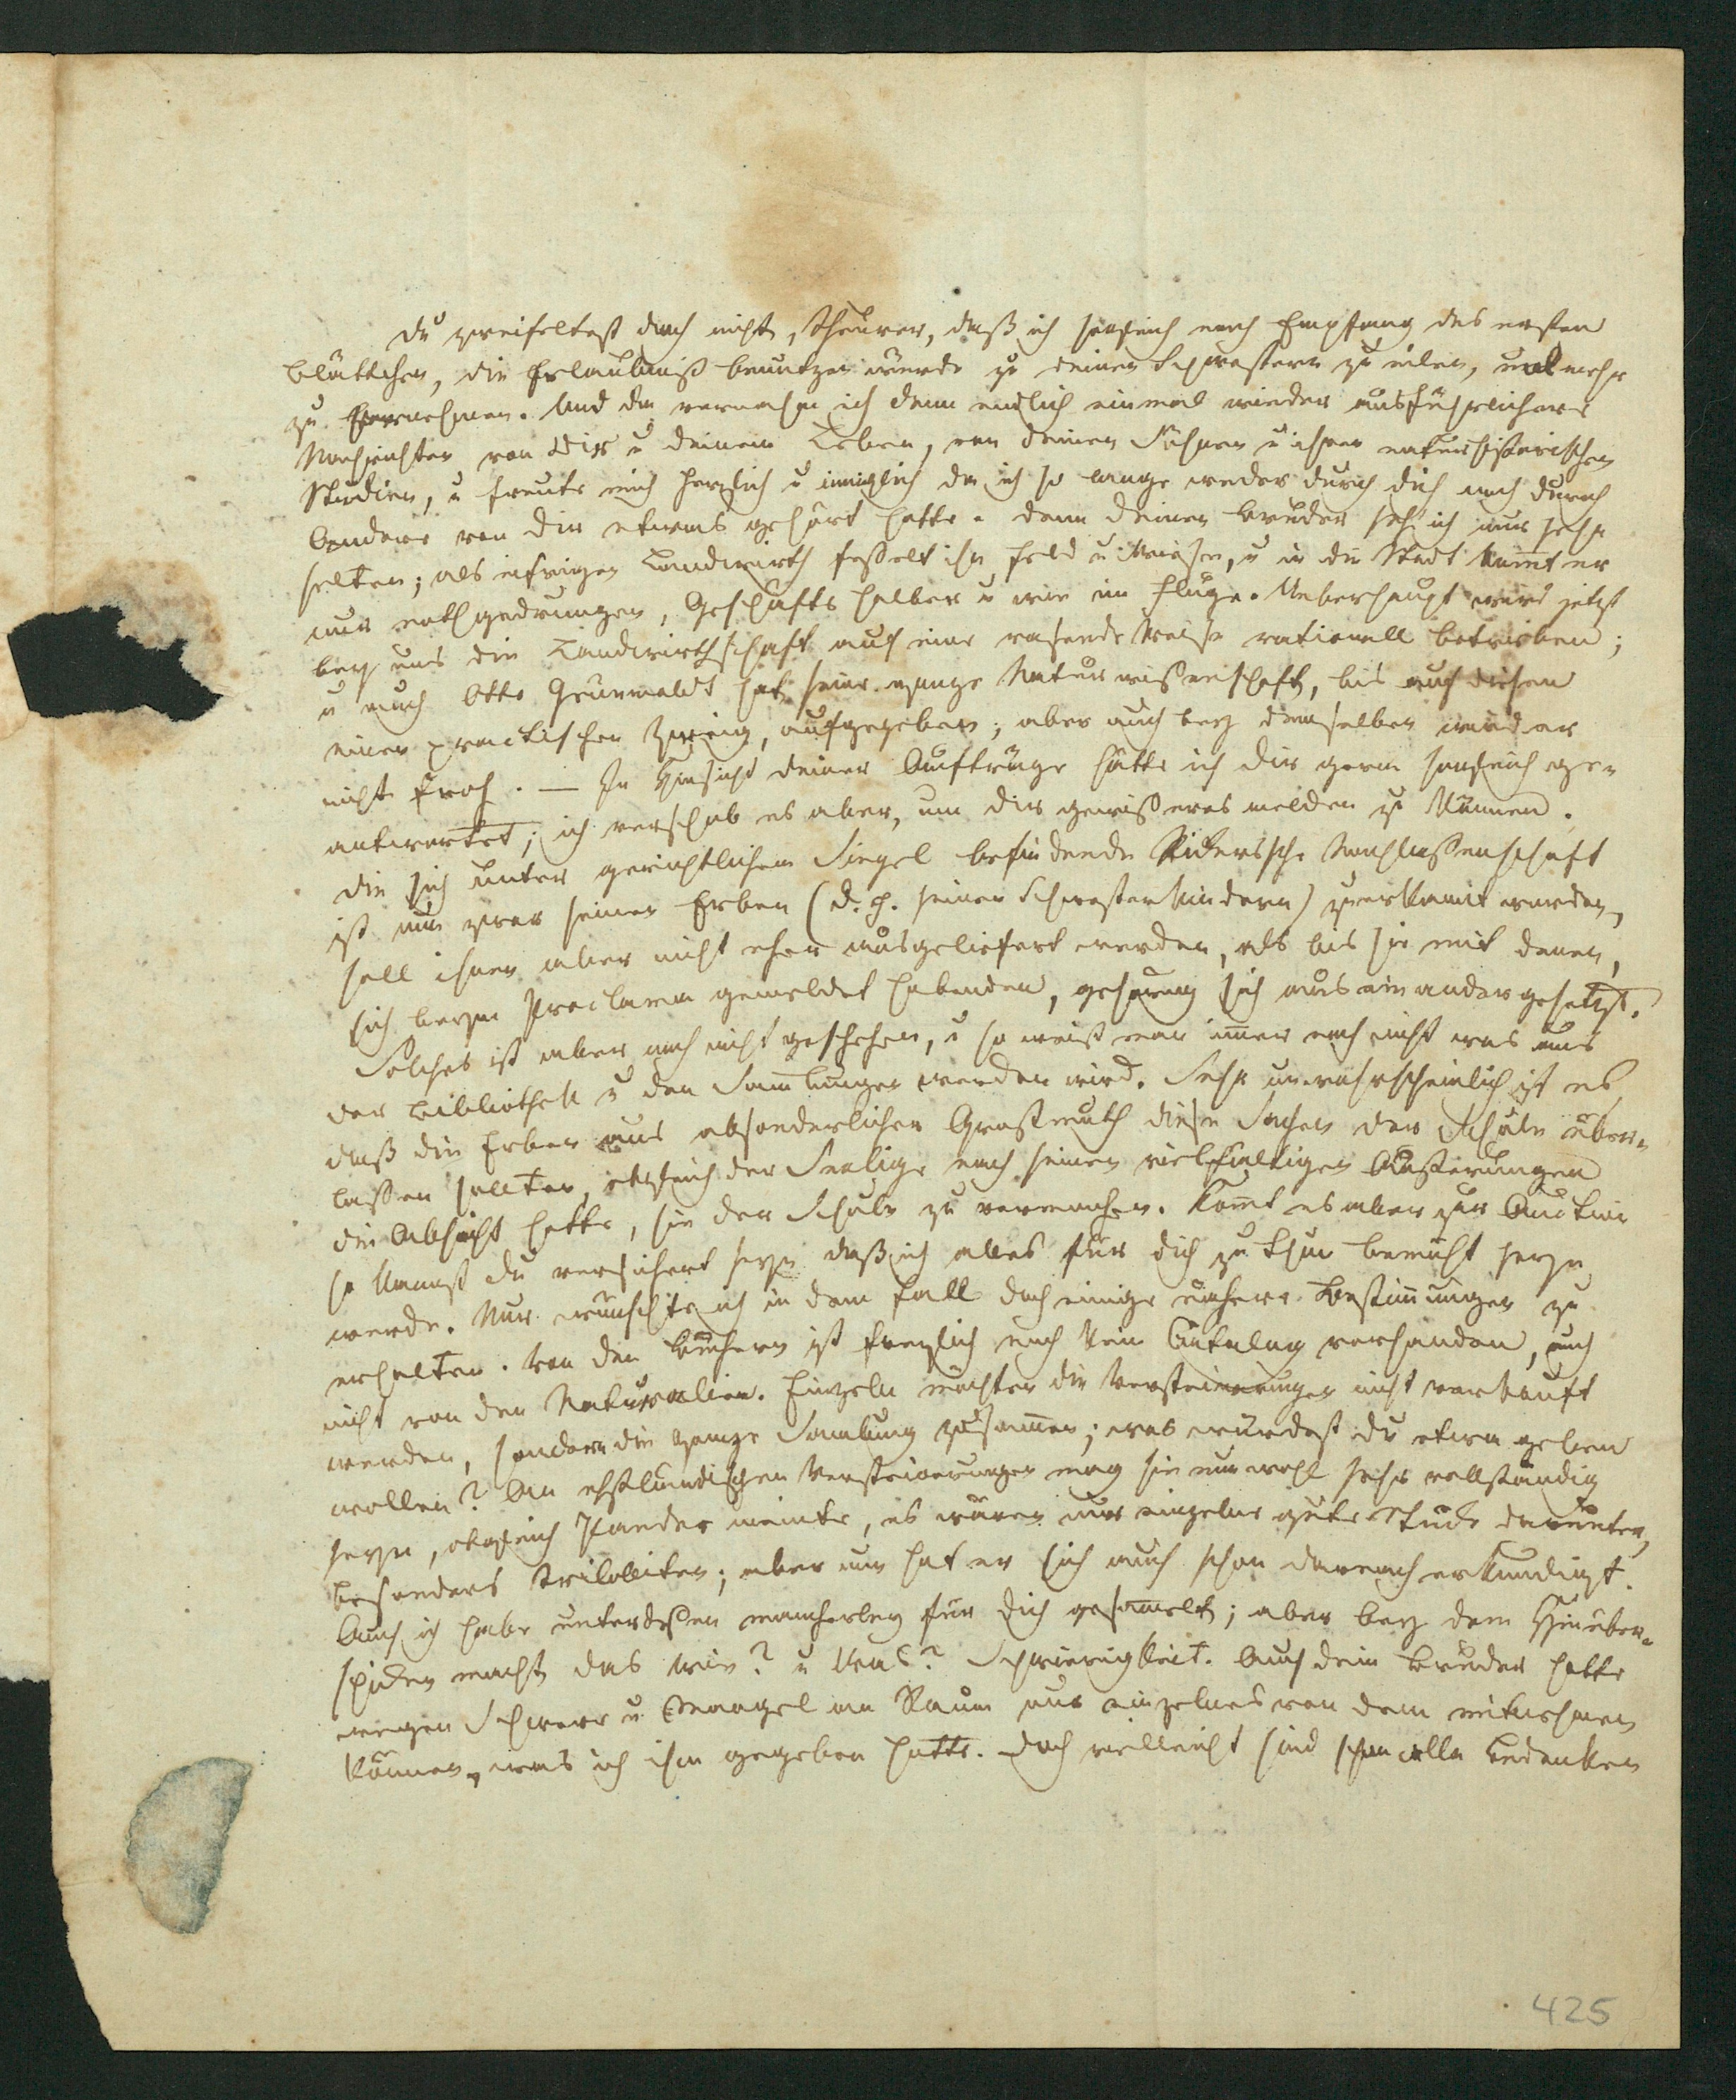 Du zweifeltest doch nicht, Theurer, daß ich sogleich nach Empfang des ersten
Blättchen, die Erlaubniß benutzen würde zu deinen Schwestern zu eilen, und mehr
zu vernehmen. Und da vernahm ich denn endlich einmal wieder ausführlichere
Nachrichten von Dir u deinem Leben, von deinen Söhnen u ihren naturhistorischen
Studien, u freute mich herzlich u inniglich da ich so lange weder durch dich noch durch
Andere von dir etwas gehört hatte. Denn deinen Bruder seh ich nur sehr
selten; als eifrigen Landwirth fesselt ihn Feld u Wiese, u in die Stadt kom̅t er
nur nothgedrungen, Geschäfts halber u wie im Fluge. Ueberhaupt wird jetzt
bey uns die Landwirthschaft auf eine rasende Weise rationell betrieben;
u auch Otto Grünwaldt hat seine ganze Naturwißenschaft, bis auf diesen
einen practischen Zweig, aufgegeben; aber auch bey demselben wird er
nicht froh. — In Hinsicht deiner Aufträge hätte ich dir gern sogleich ge-
antwortet; ich verschob es aber, um dir gewißeres melden zu können.
Die sich unter gerichtlichem Siegel befindende Rickerssche Nachlassenschaft
ist nun zwar seinen Erben (d. h. seinen Schwesterkindern) zuerkannt worden,
soll ihnen aber nicht eher ausgeliefert werden, als bis sie mit denen,
sich beym Proclam gemeldet habenden, gehörig sich auseinandergesetzt.
Solches ist aber noch nicht geschehen, u so weiß man im̅er noch nicht was aus
der Bibliothek u den Sam̅lungen werden wird. Sehr unwahrscheinlich ist es,
daß die Erben aus absonderlicher Großmuth diese Sachen der Schule über-
laßen sollten, obgleich der Seelige nach seinen vielfältigen Äußerungen
die Absicht hatte, sie der Schule zu vermachen. Kom̅t es aber zur Auction
so kannst du versichert seyn daß ich alles für dich zu thun bemüht seyn
werde. Nur wünschte ich in dem Fall doch einige nähere Bestim̅ungen zu
erhalten. Von den Büchern ist freylich noch kein Catalog vorhanden, auch
nicht von den Naturalien. Einzeln möchten die Versteinerungen nicht verkauft
werden, sondern die ganze Sam̅lung zusam̅en; was würdest du etwa geben
wollen? An ehstländischen Versteinerungen mag sie nun wohl sehr vollständig
seyn, obgleich Pander meinte, es wären nur einzelne gute Stücke darunter,
besonders Trilobiten; aber nun hat er sich auch schon darnach erkundigt.
Auch ich habe unterdeßen mancherley für dich gesam̅elt; aber bey dem Hinüber-
schicken macht das Wie? u Was? Schwierigkeit. Auch dein Bruder hatte
wegen Schwere u Mangel an Raum nur einzelnes von dem mitnehmen
können, was ich ihm gegeben hatte. Doch vielleicht sind schon alle Bedenken
425